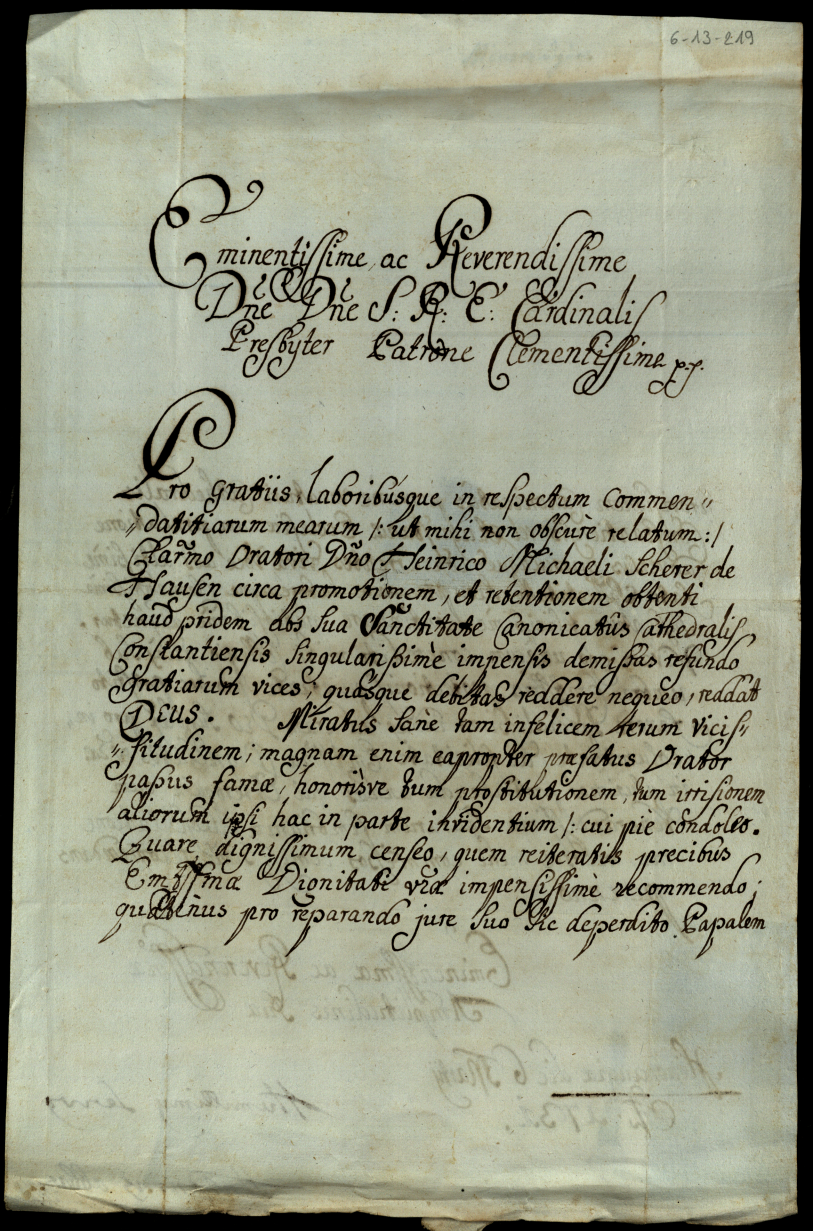 6-13-219
Eminentissime, ac Reverendissime
Dñe Dñe S: R: E: Cardinalis
Presbyter Patrone Clementissime p.p.
Pro gratiis, laboribusque in respectum Commen„
„datitiarum mearum /: ut mihi non obscurè relatum :/
Clarm̃o Oratori Dñō Heinrico Michaeli Scherer de
Hausen circa promotionem, et retentionem obtenti
haud pridem abs Sua Sanctitate Canonicatus Cathedralis
Constantiensis singularissimè impensis demissas refundo
gratiarum vices; quasque debitas reddere nequeo, reddat
DEUS. Miratus sane tam infelicem rerum vicis„
„situdinem; magnam enim eapropter præfatus Orator
passus famæ, honorisve tum prostitutionem, tum irrisionem
aliorum ipsi hac in parte invidentium /: cui piè condoleo.
Quare dignissimum censeo, quem reiteratis precibus
Dignitati vræ impensissimè recommendo;
quatenus pro reparando jure suo sic deperdito Papalem